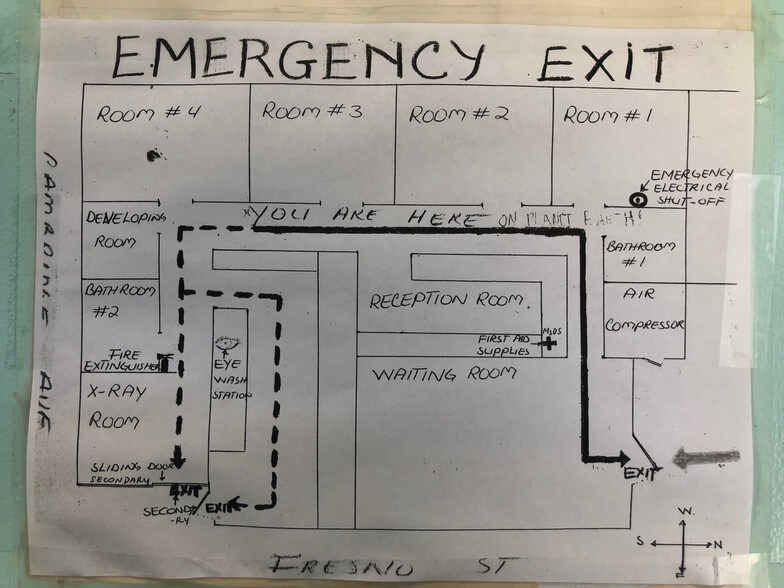 EMERGENCY EXIT
ROOM #4
ROOM #3
ROOM #2
ROOM #1
EMERGENCY
ELECTRICAL
SHUT-OFF
DEVELOPING
ROOM
XYOU ARE HERE ON PLANT EARTH!
BATHROOM
#1
BATHROOM
#2
RECEPTION ROOM
AIR
COMPRESSOR
MSDS
FIRST AID
SUPPLIES
FIRE
EXTINGUISHER
EYE
WASH
STATION
WAITING ROOM
X-RAY
ROOM
SLIDING DOOR
SECONDARY
EXIT
SECONDA
-RY
EXIT
EXIT
W.
S
N
E
FRESNO ST
AVE